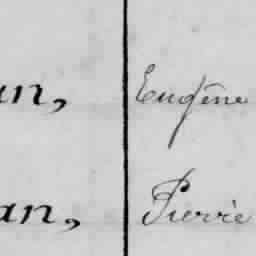 un, Eugène
an, Pierre